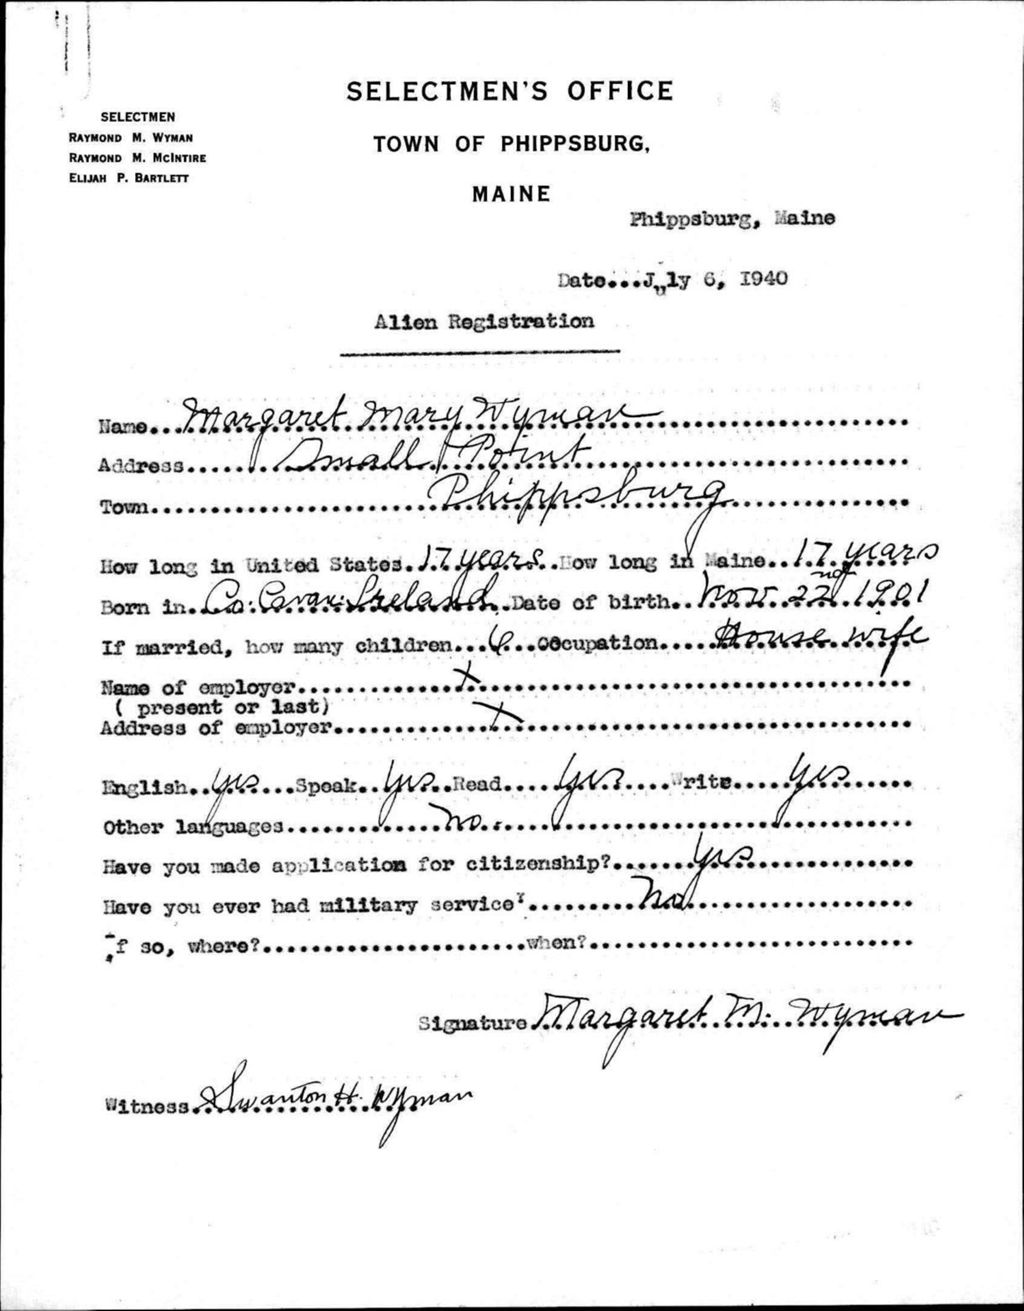 SELECTMEN'S OFFICE
TOWN OF PHIPPSBURG,
MAINE
SELECTMEN
RAYMOND M. WYMAN
RAYMOND M. MCINTIRE
ELIJAH P. BARTLETT
Phippsburg, Maine
Date...July 6, 1940
Alien Registration
Name...Margaret Mary Wyman
Address...Small Point
Town...Phippsburg
How long in United States..17 years..How long in Maine..17 years
Born in..Co. Cavan. Ireland..Date of birth..Nov. 22nd 1901
If married, how many children...6...Occupation...House wife
Name of employer...x
( present or last)
Address of employer...x
English..yes...Speak..yes..Read...yes...Write...yes
Other languages...no.
Have you made application for citizenship?...yes
Have you ever had military service?...no
If so, where?...when?
Signature Margaret M. Wyman
Witness Swanton H. Wyman